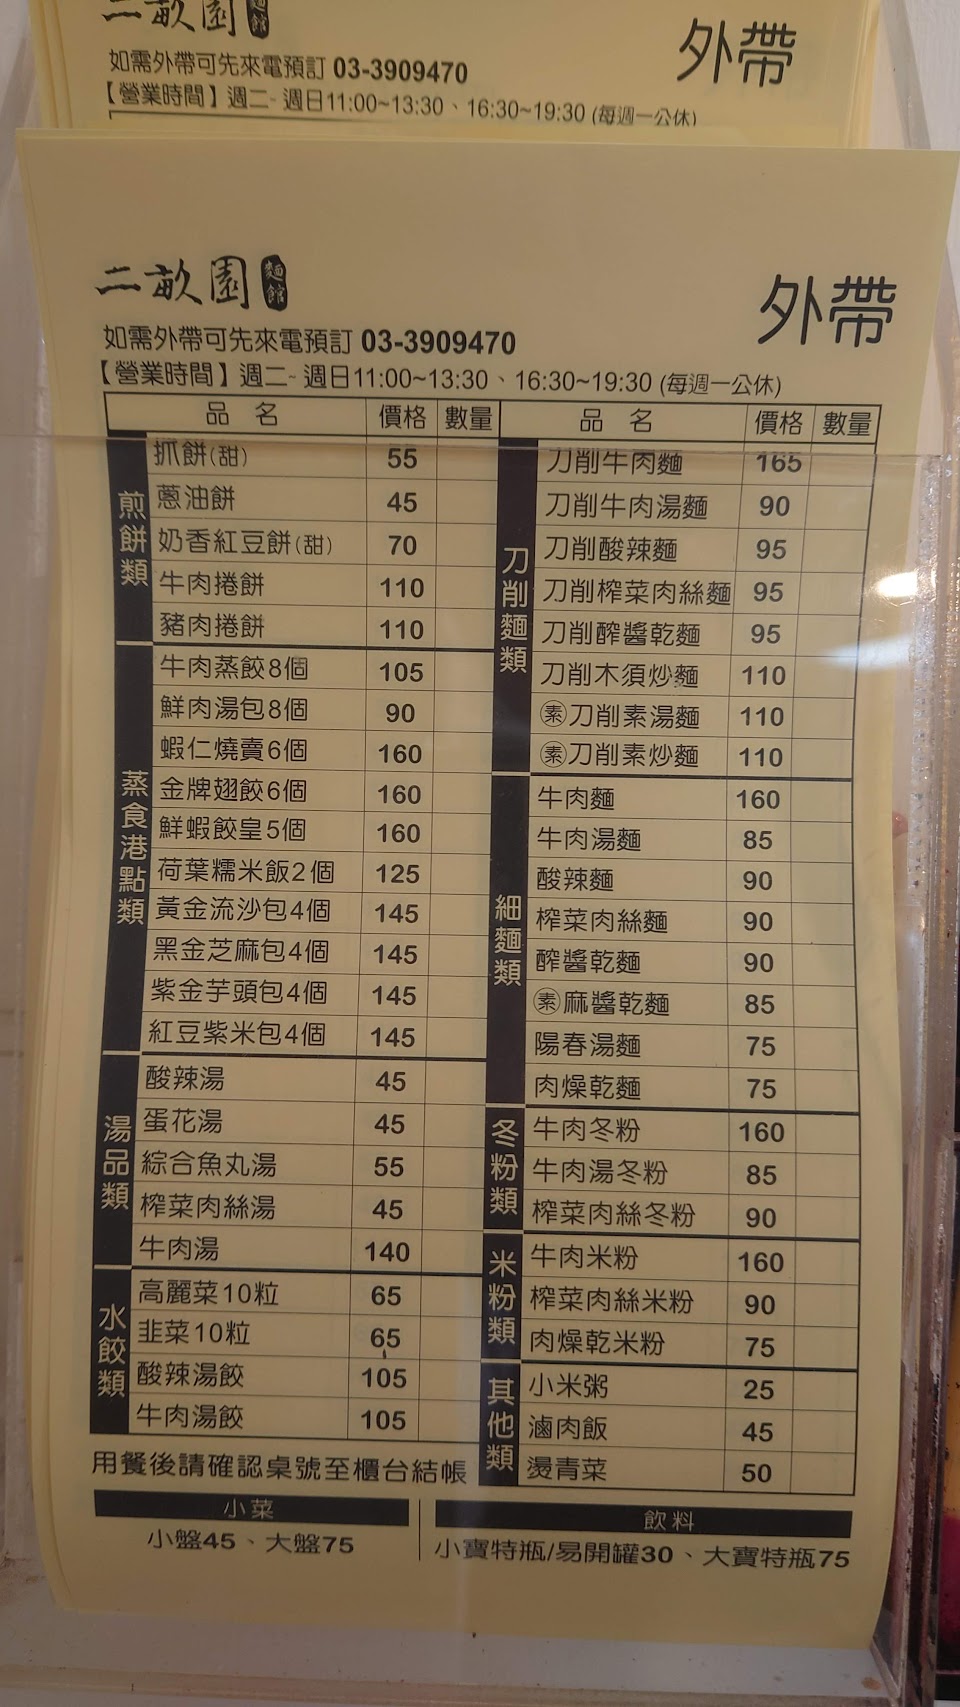 二畝園 麵館
如需外帶可先來電預訂 03-3909470
外帶
【營業時間】週二~週日11:00~13:30、16:30~19:30 (每週一公休)
二畝園 麵館
外帶
如需外帶可先來電預訂 03-3909470
【營業時間】週二~週日11:00~13:30、16:30~19:30 (每週一公休)
品 名 價格 數量
煎餅類
抓餅(甜) 55
蔥油餅 45
奶香紅豆餅(甜) 70
牛肉捲餅 110
豬肉捲餅 110
蒸食港點類
牛肉蒸餃8個 105
鮮肉湯包8個 90
蝦仁燒賣6個 160
金牌翅餃6個 160
鮮蝦餃皇5個 160
荷葉糯米飯2個 125
黃金流沙包4個 145
黑金芝麻包4個 145
紫金芋頭包4個 145
紅豆紫米包4個 145
湯品類
酸辣湯 45
蛋花湯 45
綜合魚丸湯 55
榨菜肉絲湯 45
牛肉湯 140
水餃類
高麗菜10粒 65
韭菜10粒 65
酸辣湯餃 105
牛肉湯餃 105
品 名 價格 數量
刀削麵類
刀削牛肉麵 165
刀削牛肉湯麵 90
刀削酸辣麵 95
刀削榨菜肉絲麵 95
刀削醡醬乾麵 95
刀削木須炒麵 110
㊍素刀削素湯麵 110
素刀削素炒麵 110
細麵類
牛肉麵 160
牛肉湯麵 85
酸辣麵 90
榨菜肉絲麵 90
醡醬乾麵 90
素麻醬乾麵 85
陽春湯麵 75
肉燥乾麵 75
冬粉類
牛肉冬粉 160
牛肉湯冬粉 85
榨菜肉絲冬粉 90
米粉類
牛肉米粉 160
榨菜肉絲米粉 90
肉燥乾米粉 75
其他類
小米粥 25
滷肉飯 45
燙青菜 50
用餐後請確認桌號至櫃台結帳
小菜
小盤45、大盤75
飲料
小寶特瓶/易開罐30、大寶特瓶75